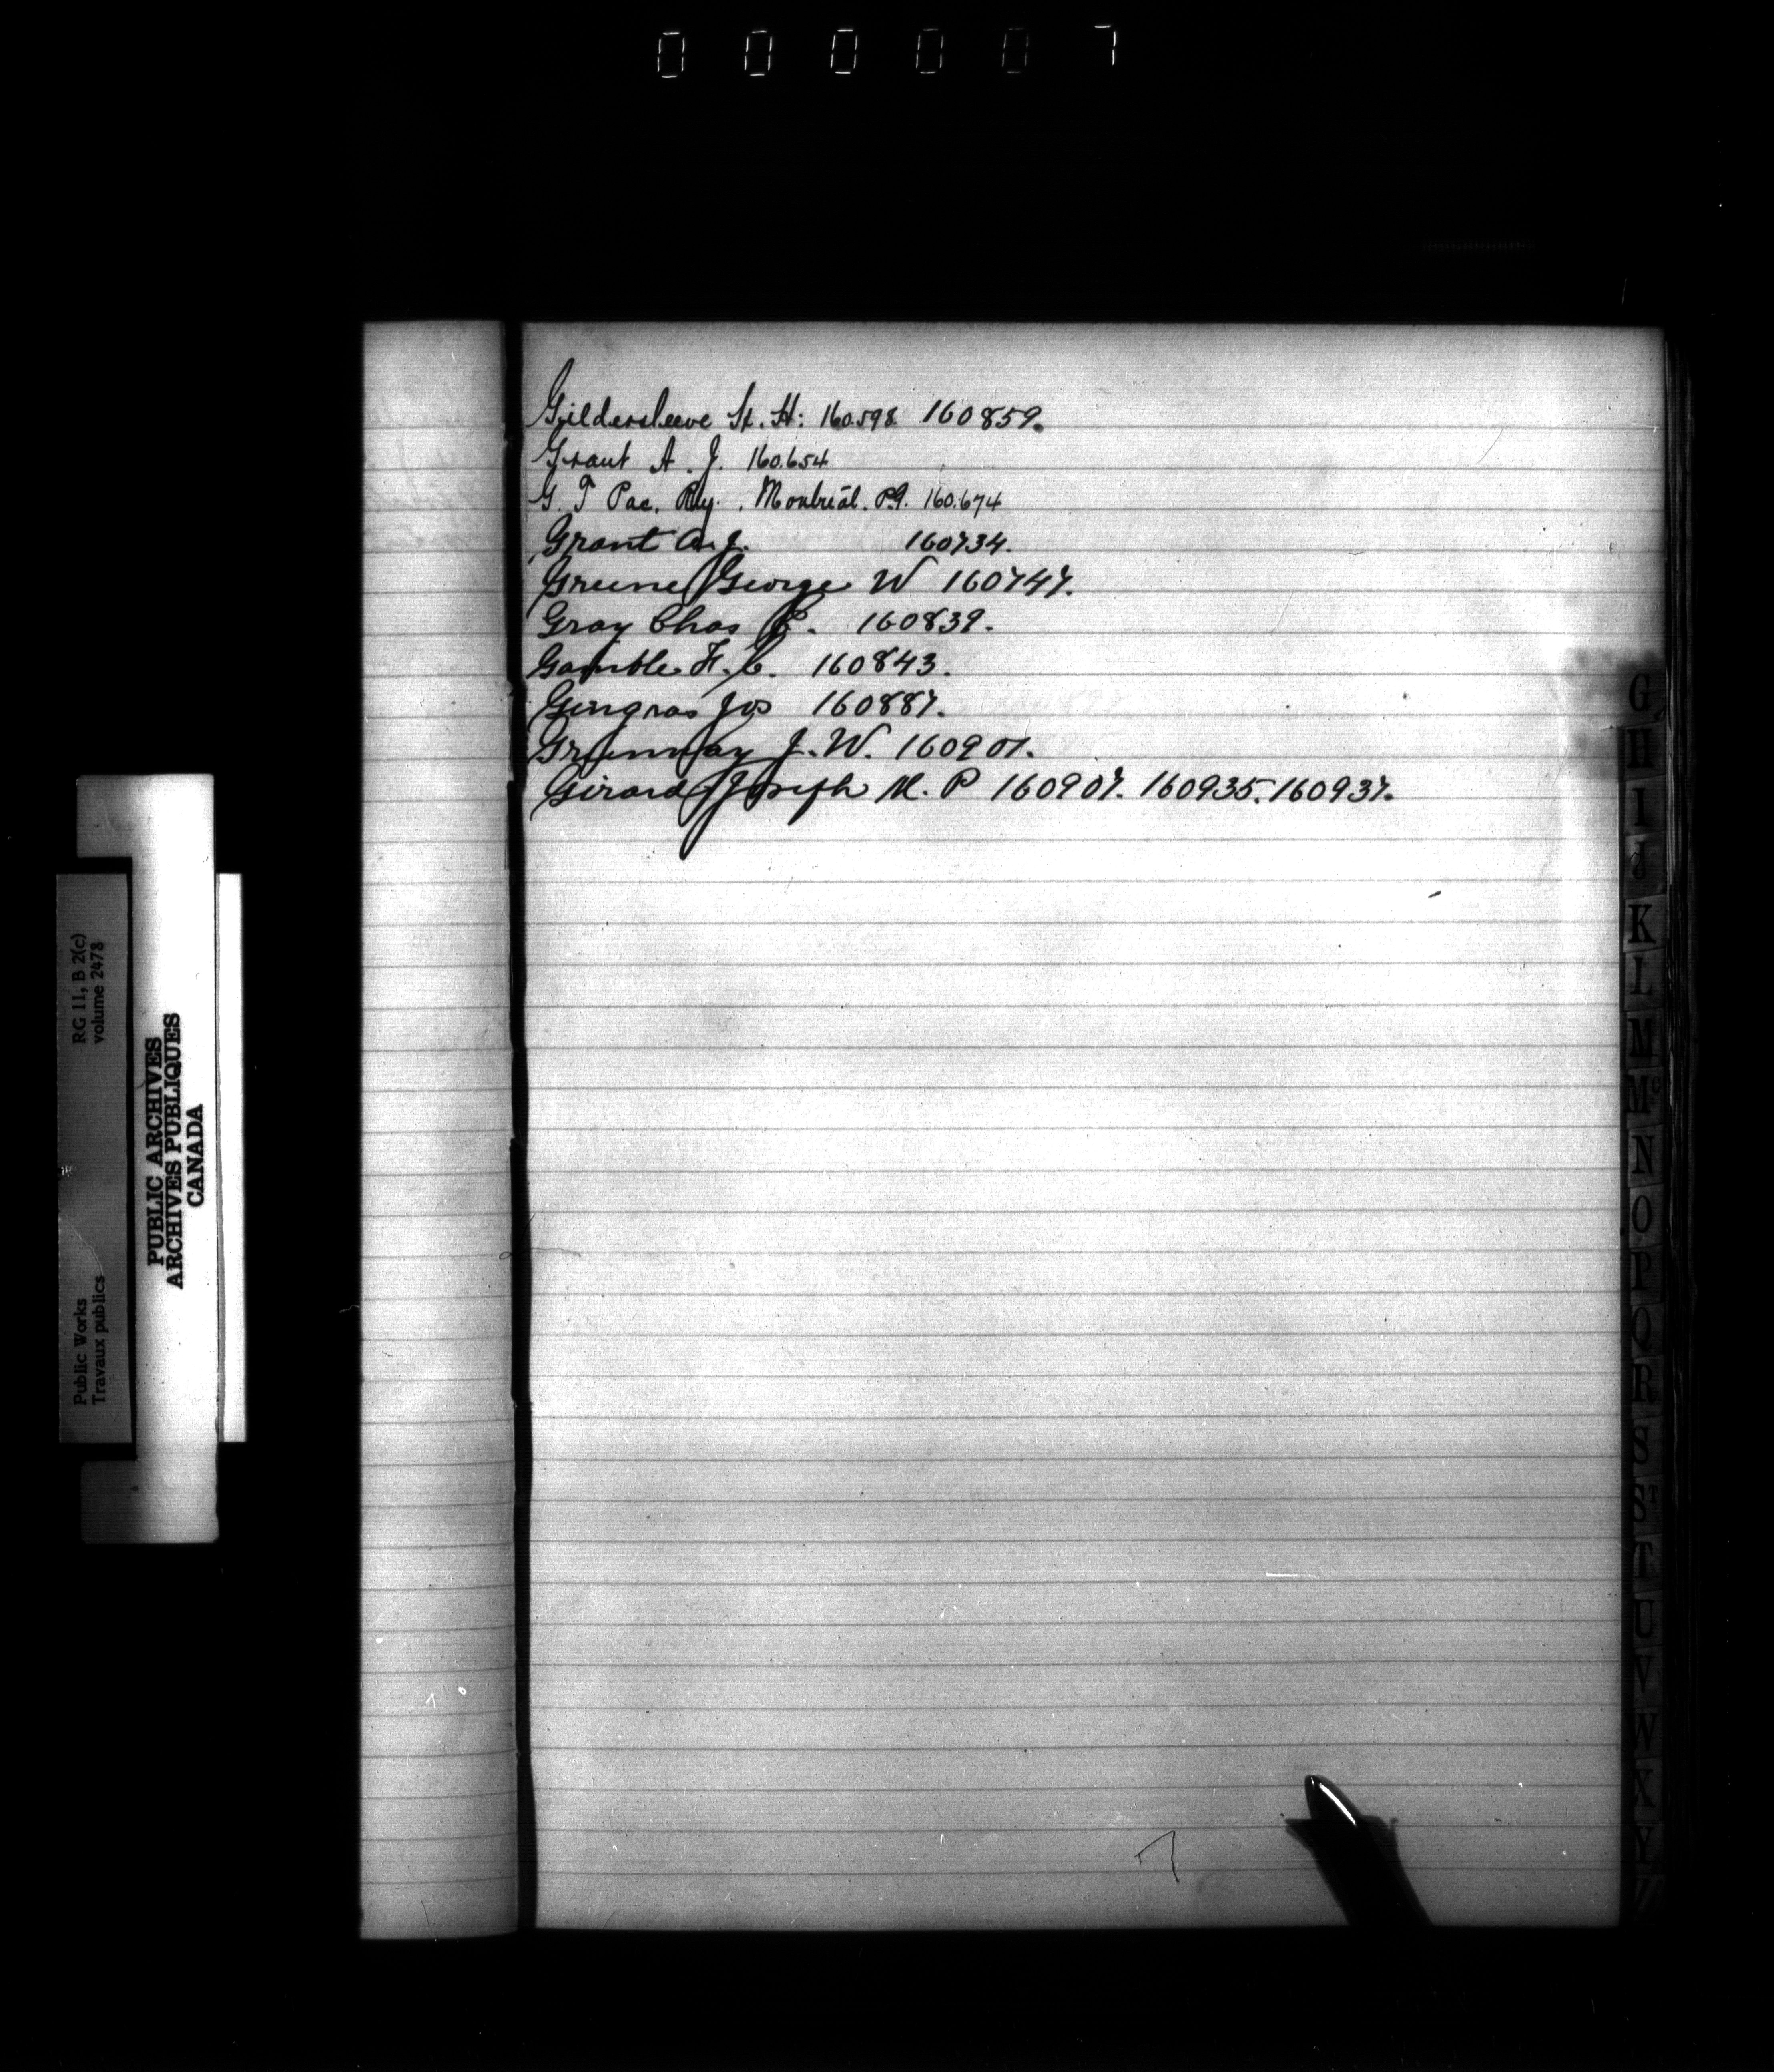 0 0 0 0 0 7
Gildersleeve H. H: 160.598. 160859.
Grant A. J. 160.654
G. T Pac. Ry., Montreal. P.Q. 160.674
Grant A. J. 160734.
Greene George W 160747.
Gray Chas E. 160839.
Gamble F. C. 160843.
Gingras Jos 160887.
Greenway J. W. 160901.
Girard Joseph M. P 160907. 160935. 160937.
7
G
H
I
J
K
L
M
Mc
N
O
P
Q
R
S
ST
T
U
V
W
X
Y
Z
RG 11, B 2(c)
volume 2478
Public Works
Travaux publics
PUBLIC ARCHIVES
ARCHIVES PUBLIQUES
CANADA